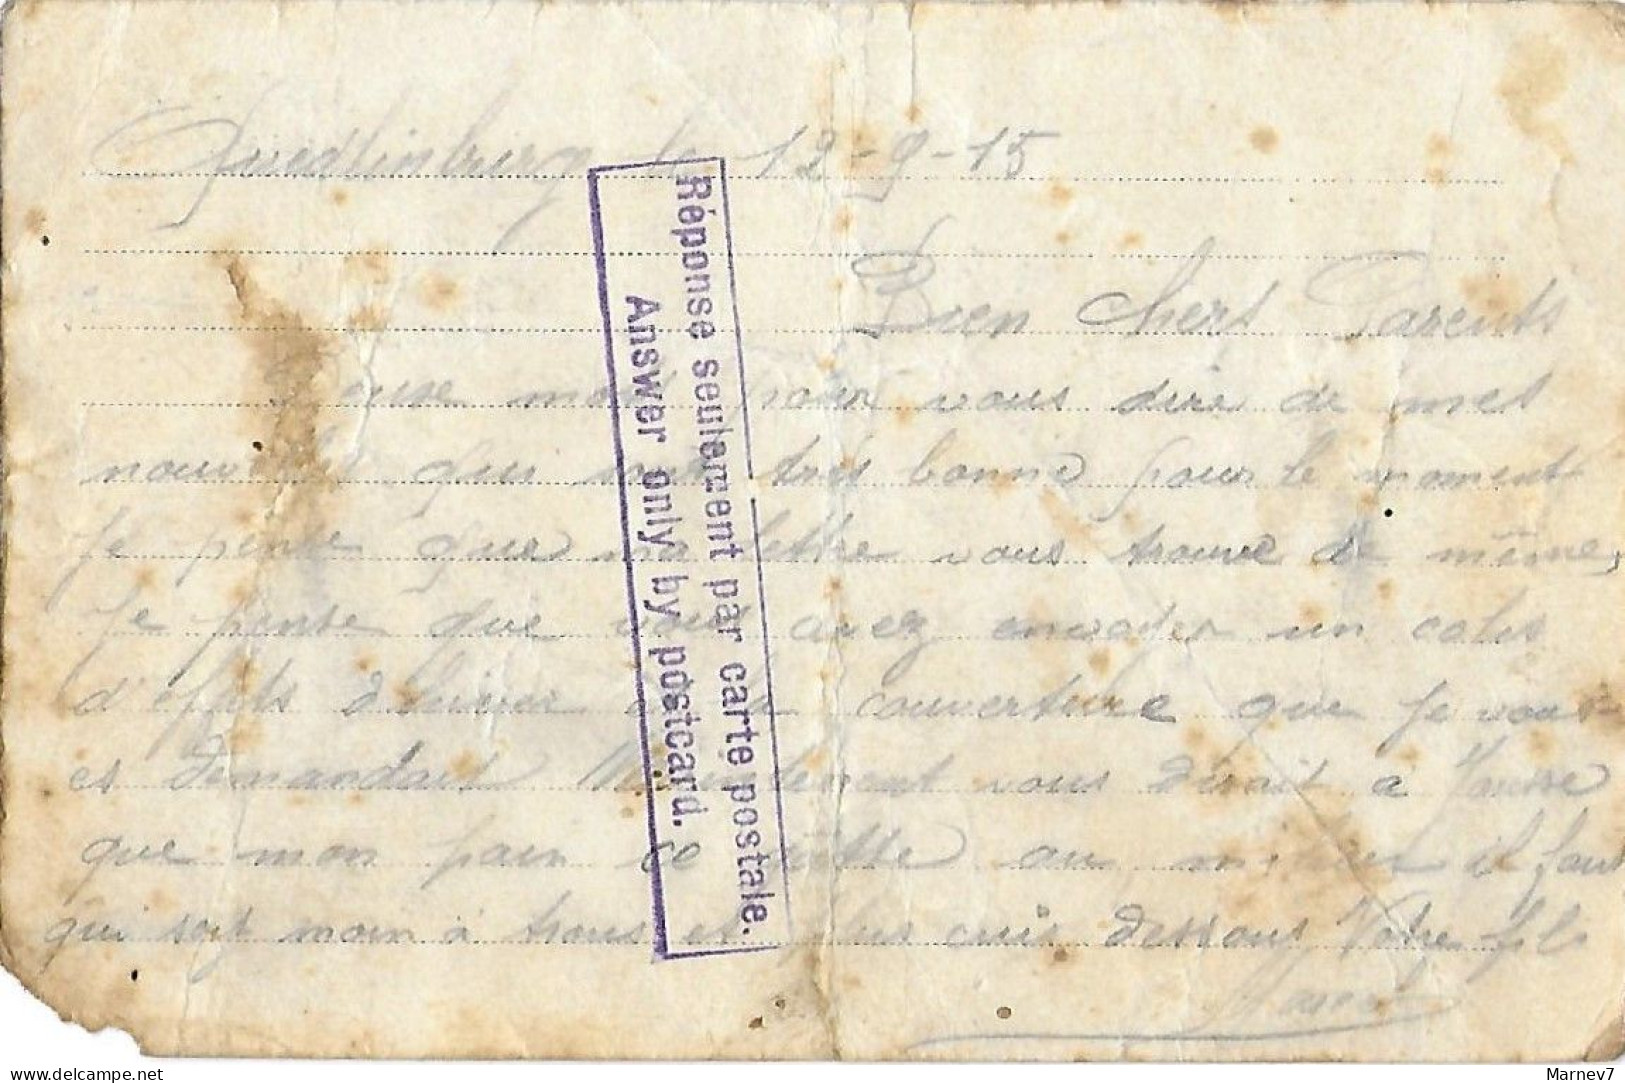 Quedlinburg le 12-9-15
Bien chers Parents
deux mots pour vous dire de mes
nouvelles qui sont très bonne pour le moment
je pense que ma lettre vous trouve de même,
je pense que vous avez envoyer un colis
d'efets d'hiver et la couverture que je vous
es demandait Maintement vous dirait a
que mon pain au milieu il faut
qui soit moin a trous et plus cuis dessous Votre fils
Réponse seulement par carte postale.
Answer only by postcard.
delcampe.net
Marnev7